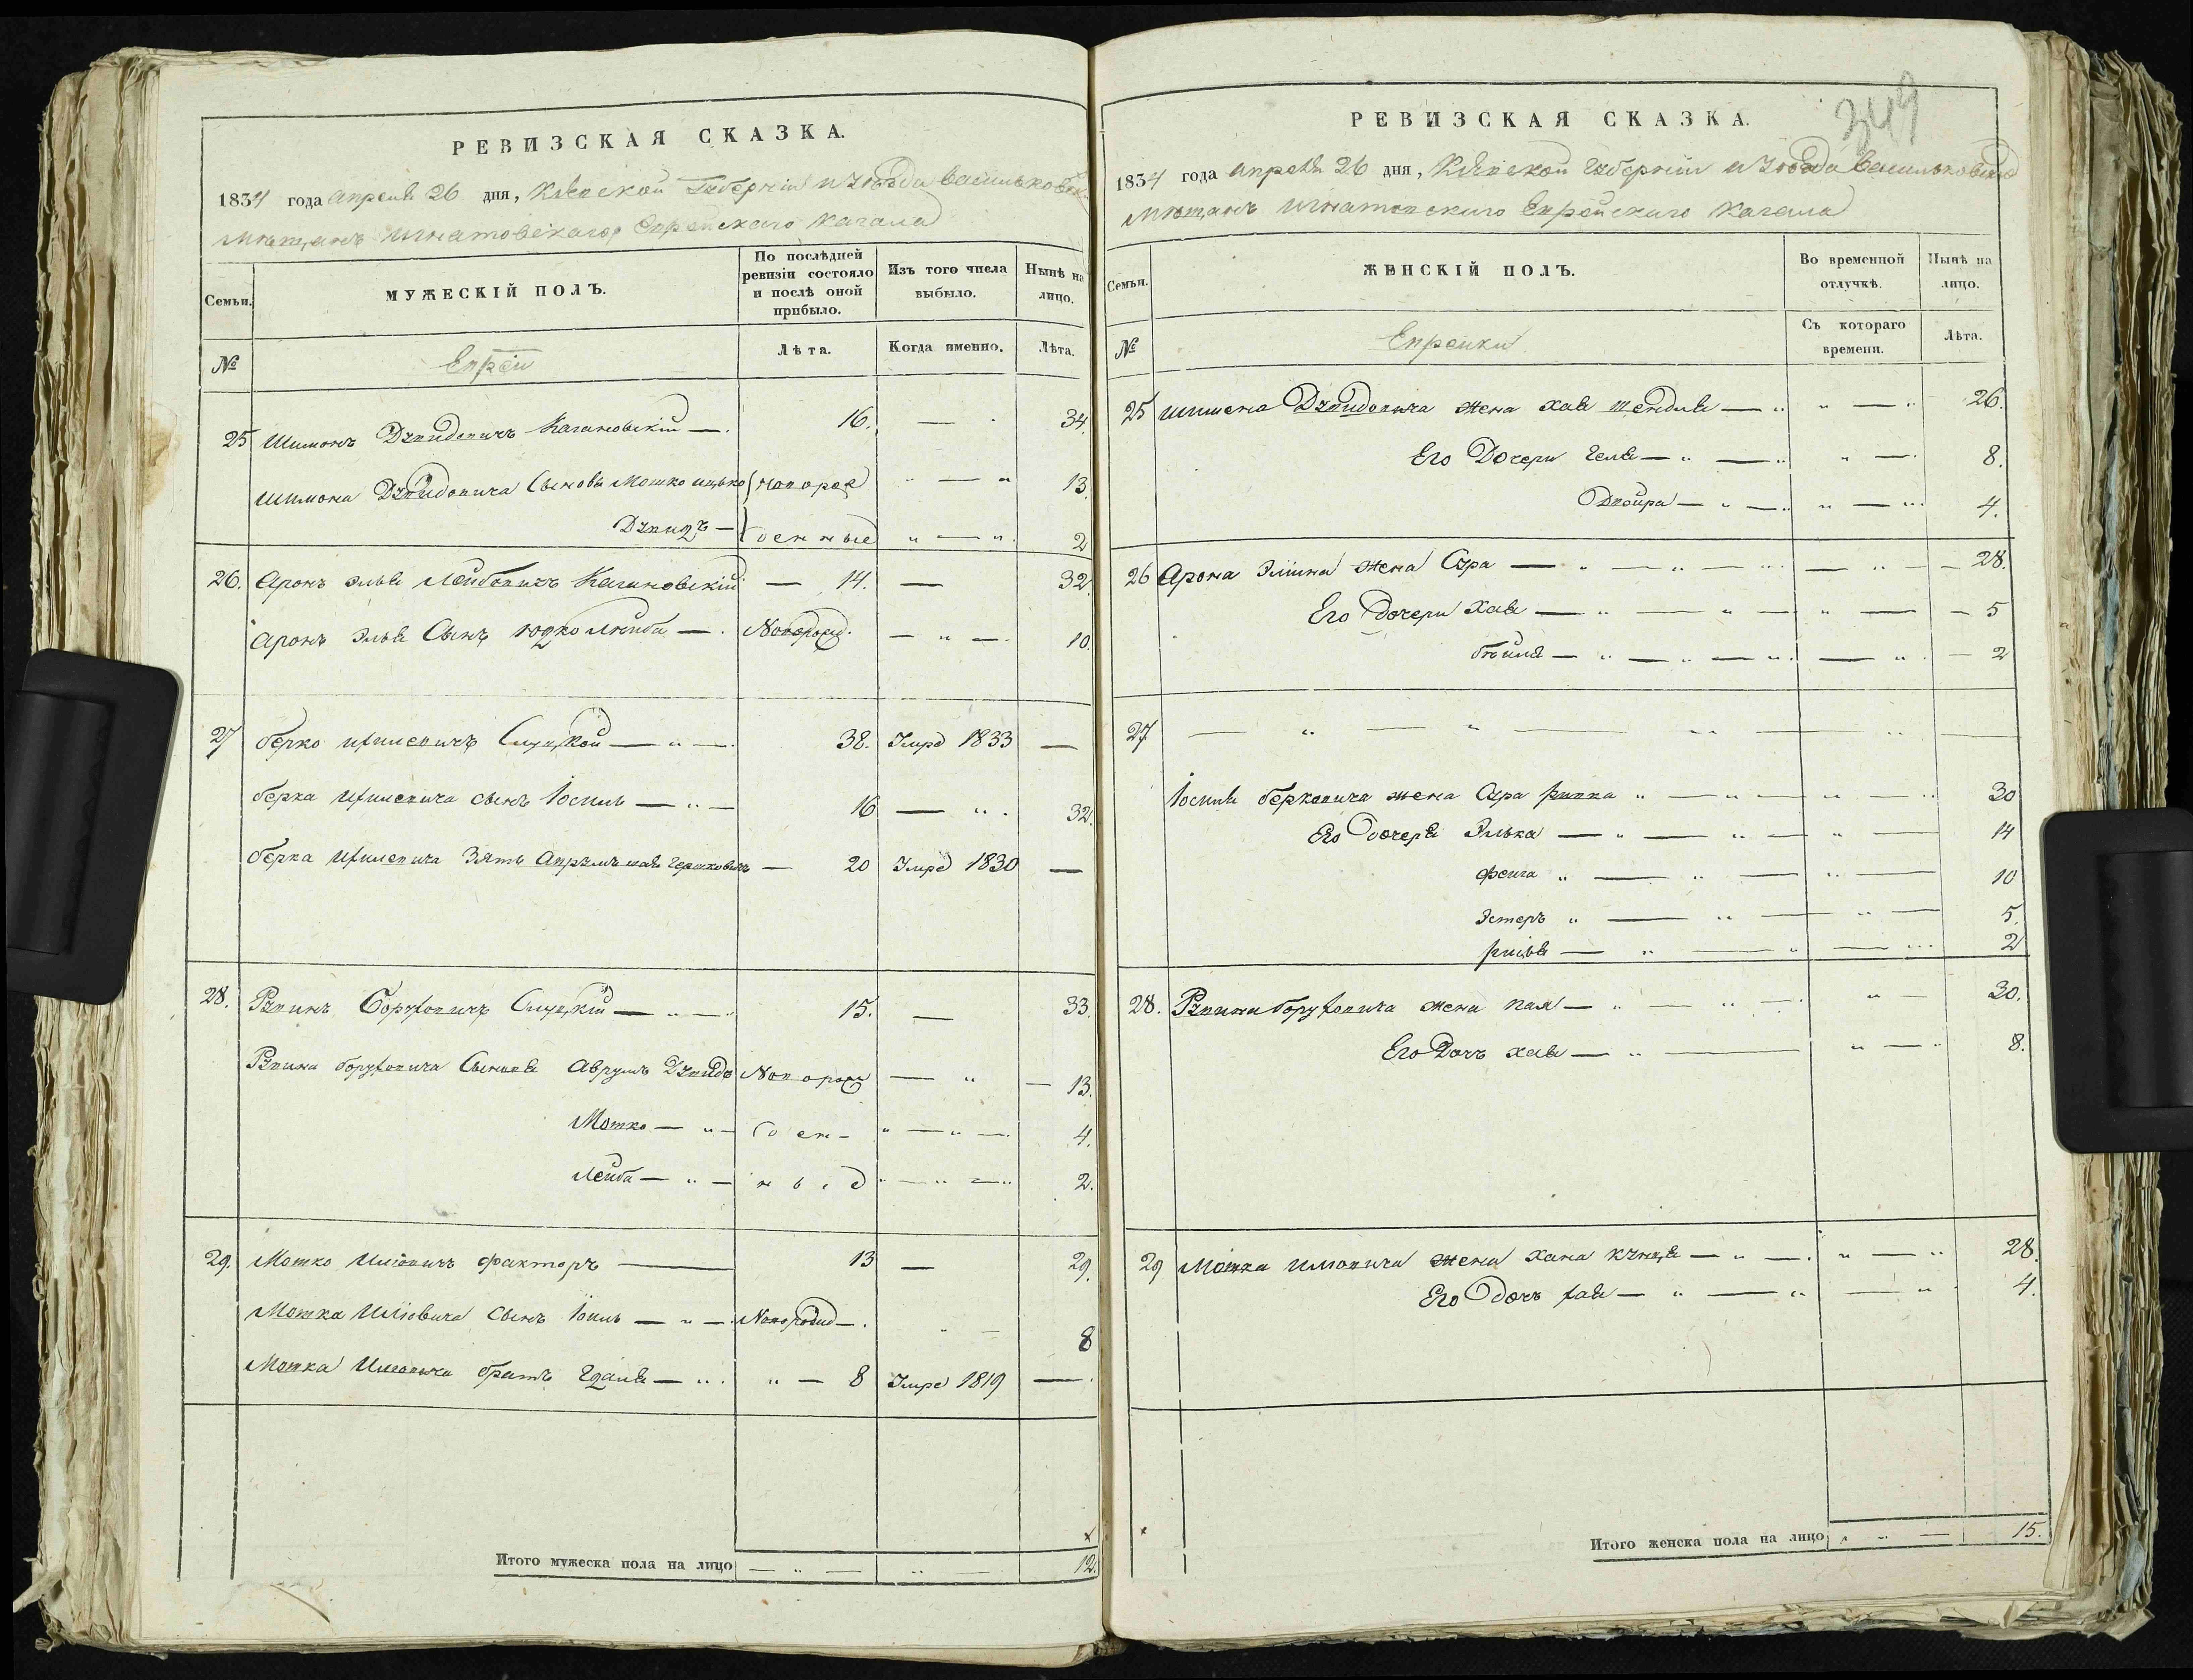 РЕВИЗСКАЯ СКАЗКА.
1834 года апреля 26 дня, Кіевской Губерніи и уѣзда Васильковск
Мѣщанъ Игнатовскаго Еврейскаго Кагала
Семьи. МУЖЕСКІЙ ПОЛЪ. По послѣдней ревизіи состояло и послѣ оной прибыло. Изъ того числа выбыло. Нынѣ на лицо.
№ Евреи Лѣта. Когда именно. Лѣта.
25 Шимонъ Дзвидовичъ Кагановскій — 16. — 34.
Шимона Дзвидовича Сыновъя Мошко ицько новорож „ — „ 13.
Дзвидъ — денные „ — „ 2
26. Аронъ Эльва Лейбовичъ Кагановскій — 14. — 32.
Аронъ Эльва Сынъ юдко лейба — Новорожд. — „ — 10.
27 берко ицилевичъ Слуцкой — „ — 38. Умре 1833 —
берка ицилевича сынъ Іосиль — „ — 16 — „ 32.
берка ицилевича Зять Авраамъ Гершковичъ — 20 Умре 1830 —
28. Рзвинъ Боруховичъ Слуцкій — „ — 15. — 33.
Рзвина боруховича Сыновя Аврумъ Дзвидъ Новорож — „ — 13.
Мошко — „ — ден- „ — „ — 4.
Лейба — „ — ные „ — „ — „ 2.
29. Мошко Иціовичъ факторъ — 13 — 29.
Мошка Иціовича сынъ Іоиль — „ — Новорожд — 8
Мошка Иціовича братъ Гдаля — „ „ — 8 Умре 1819 —
Итого мужеска пола на лицо — „ — „ — 12.
349
РЕВИЗСКАЯ СКАЗКА.
1834 года апреля 26 дня, Кіевской Губерніи и уѣзда Васильковск
Мѣщанъ Игнатовскаго Еврейскаго Кагала
Семьи. ЖЕНСКІЙ ПОЛЪ. Во временной отлучкѣ. Нынѣ на лицо.
№ Еврейки Съ котораго времени. Лѣта.
25 Шимона Дзвидовича жена хая шендля — „ „ — „ 26.
Его Дочери Геля — „ — „ „ — 8.
Двойра — „ — „ — „ 4.
26 Арона Эліина жена Сура — „ — „ — „ — „ — 28.
Его дочери хая — „ — „ — „ — 5
бѣйля — „ — „ — „ — „ — 2
27 — „ — „ — „ — „ —
Іосиля берковича жена Сура ривка „ — „ — „ — „ 30
Его дочеря Элька — „ — „ — „ — 14
фейга „ — „ — „ — 10
Эстеръ „ — „ — „ — 5.
рысля — „ — „ — „ 2
28. Рзвина боруховича жена пая — „ — „ — „ — 30.
Его Дочъ хая — „ — „ — „ 8.
29 Мошка Иціовича жена хана — „ — „ — „ 28.
Его дочъ хая — „ — „ — „ 4.
Итого женска пола на лицо „ „ — 15.